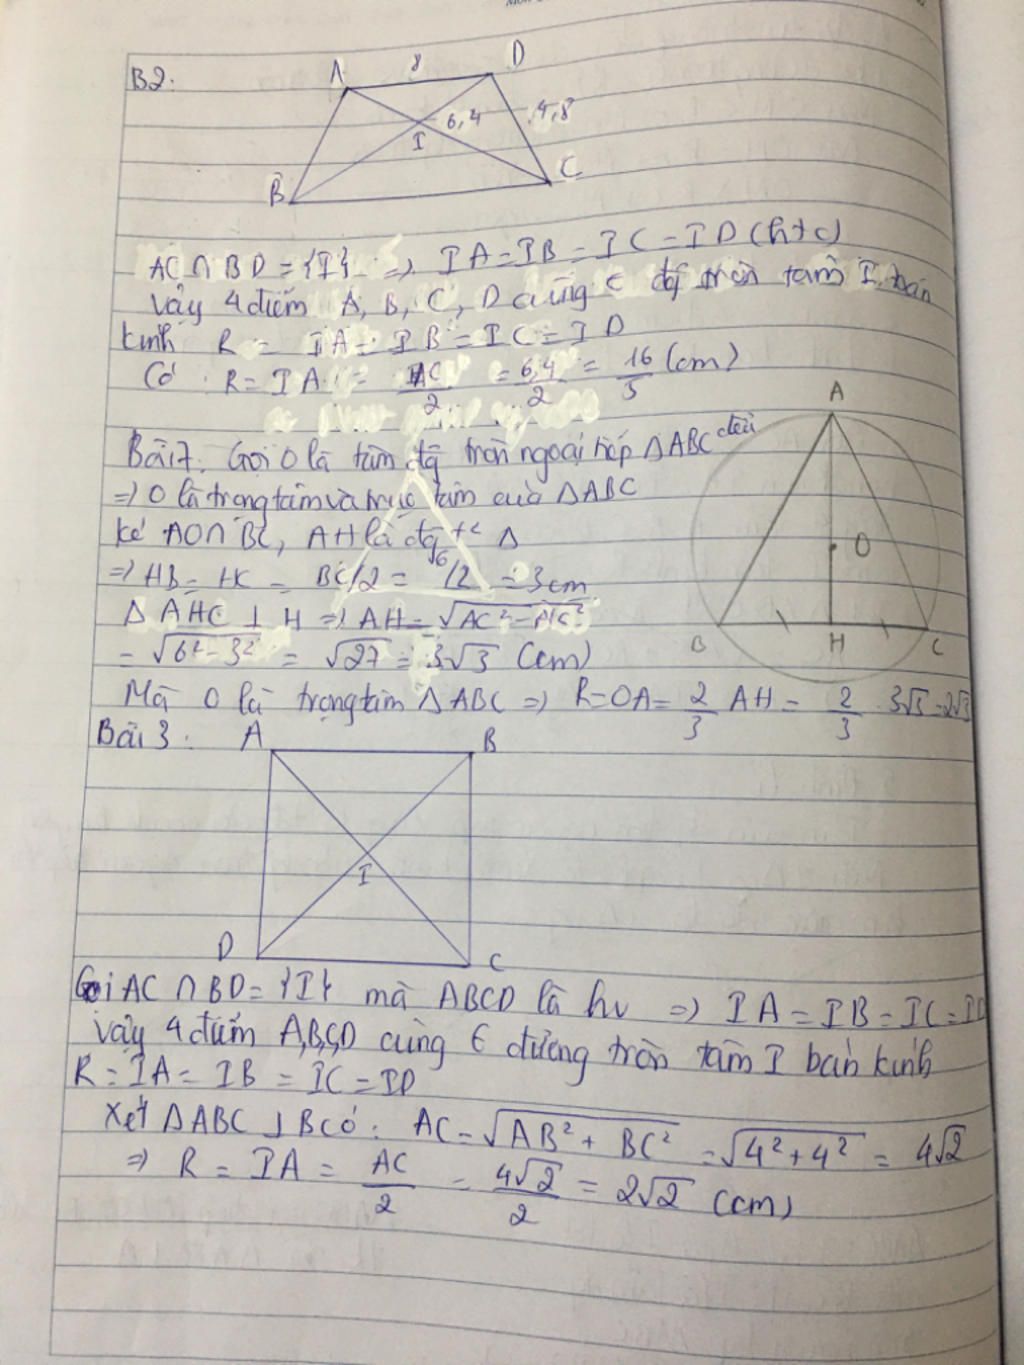 B2.
A 8 D
6,4 4,8
I
B C
AC ∩ BD = {I} ⇒ IA = IB = IC = ID (htc)
vậy 4 điểm A, B, C, D cùng ∈ đg tròn tâm I, bán
kính R = IA = IB = IC = ID
Có: R = IA = AC/2 = 6,4/2 = 16/5 (cm)
Bài 7. Gọi O là tâm đg tròn ngoại tiếp ΔABC đều
⇒ O là trọng tâm và trực tâm của ΔABC
kẻ AO ∩ BC, AH là đg t² Δ
⇒ HB = HC = BC/2 = 6/2 = 3 cm
Δ AHC ⊥ H ⇒ AH = √AC² - HC²
= √6² - 3² = √27 = 3√3 (cm)
A
O
B H C
Mà O là trọng tâm ΔABC ⇒ R = OA = 2/3 AH = 2/3 . 3√3 = 2√3
Bài 3: A B
I
D C
Gọi AC ∩ BD = {I} mà ABCD là hv ⇒ IA = IB = IC = ID
vậy 4 điểm A,B,C,D cùng ∈ đường tròn tâm I bán kính
R = IA = IB = IC = ID
Xét ΔABC ⊥ B có: AC = √AB² + BC² = √4² + 4² = 4√2
⇒ R = IA = AC/2 = 4√2/2 = 2√2 (cm)